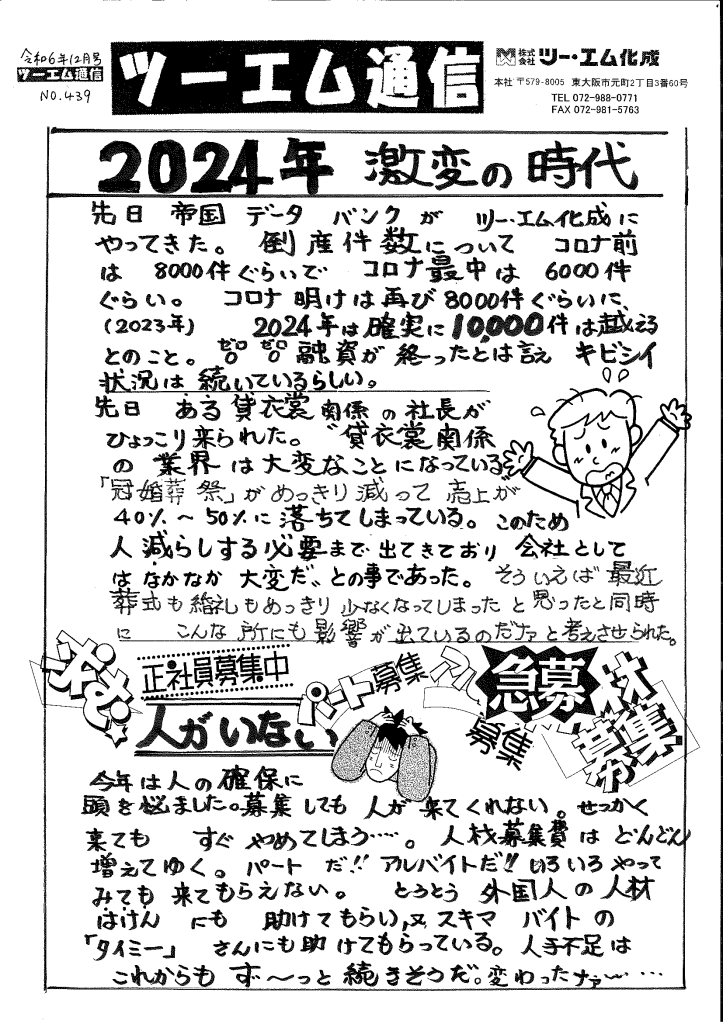 令和6年12月号
ツーエム通信
NO.439
ツーエム通信
株式会社 ツー・エム化成
本社 〒579-8005 東大阪市元町2丁目3番60号
TEL 072-988-0771
FAX 072-981-5763
2024年 激変の時代
先日 帝国 データ バンク が ツー・エム化成に
やってきた。 倒産件数について コロナ前
は 8000件ぐらいで コロナ最中は 6000件
ぐらい。 コロナ明けは再び8000件ぐらいに、
(2023年) 2024年は確実に10,000件は越える
とのこと。 ゼロゼロ融資が終ったとは言え キビシイ
状況は続いているらしい。
先日 ある貸衣裳関係の社長が
ひょっこり来られた。〝貸衣裳関係
の業界は大変なことになっている
「冠婚葬祭」がめっきり減って売上が
40%〜50%に落ちてしまっている。このため
人減らしする必要まで出てきており会社として
はなかなか大変だ〟との事であった。そういえば最近
葬式も婚礼もめっきり少なくなってしまったと思ったと同時
に こんな所にも影響が出ているのだナァと考えさせられた。
求む!
正社員募集中
パート募集
アル
募集
急募
人材募集
人がいない
今年は人の確保に
頭を悩ました。募集しても人が来てくれない。せっかく
来ても すぐやめてしまう……。人材募集費はどんどん
増えてゆく。パートだ!!アルバイトだ!!いろいろやって
みても来てもらえない。 とうとう外国人の人材
はけんにも助けてもらい,又スキマバイトの
「タイミー」さんにも助けてもらっている。人手不足は
これからもず〜っと続きそうだ。変わったナァ〜……